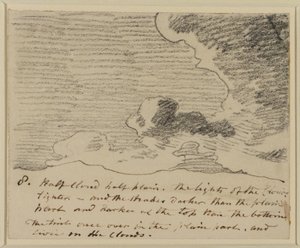 8. Half cloud half plain. the lights of the clouds
lighter - and the shades darker than the plain
part and darker at the top than the bottom
The tint once over in the plain part, and
twice in the clouds.